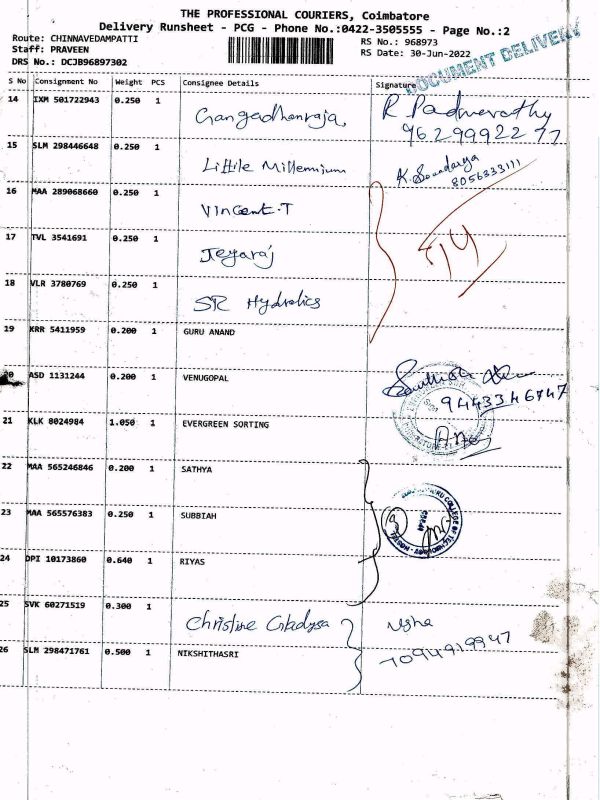 THE PROFESSIONAL COURIERS, Coimbatore
Delivery Runsheet - PCG - Phone No.:0422-3505555 - Page No.:2
Route: CHINNAVEDAMPATTI
Staff: PRAVEEN
DRS No.: DCJB96897302
RS No.: 968973
RS Date: 30-Jun-2022
DOCUMENT DELIVERY
S No Consignment No Weight PCS Consignee Details Signature
14 IXM 501722943 0.250 1 Gangadhenraja, R Padmavathy
9629992277
15 SLM 298446648 0.250 1 Little Millennium K. Soundarya
8056333111
16 MAA 289068660 0.250 1 Vincent.T
17 TVL 3541691 0.250 1 Jeyaraj
18 VLR 3780769 0.250 1 SR Hydrolics
19 KRR 5411959 0.200 1 GURU ANAND
20 ASD 1131244 0.200 1 VENUGOPAL
9443346747
21 KLK 8024984 1.050 1 EVERGREEN SORTING
22 MAA 565246846 0.200 1 SATHYA
23 MAA 565576383 0.250 1 SUBBIAH
COLLEGE OF
24 DPI 10173860 0.640 1 RIYAS
25 SVK 60271519 0.300 1 Christine Gladysa Usha
7094919947
26 SLM 298471761 0.500 1 NIKSHITHASRI